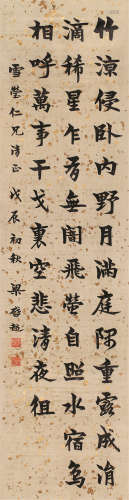 竹涼侵臥內野月滿庭隅重露成涓
滴稀星乍有無闇飛螢自照水宿鳥
相呼萬事干戈裏空悲清夜徂
雪瑩仁兄清正 戊辰初秋 梁啓超